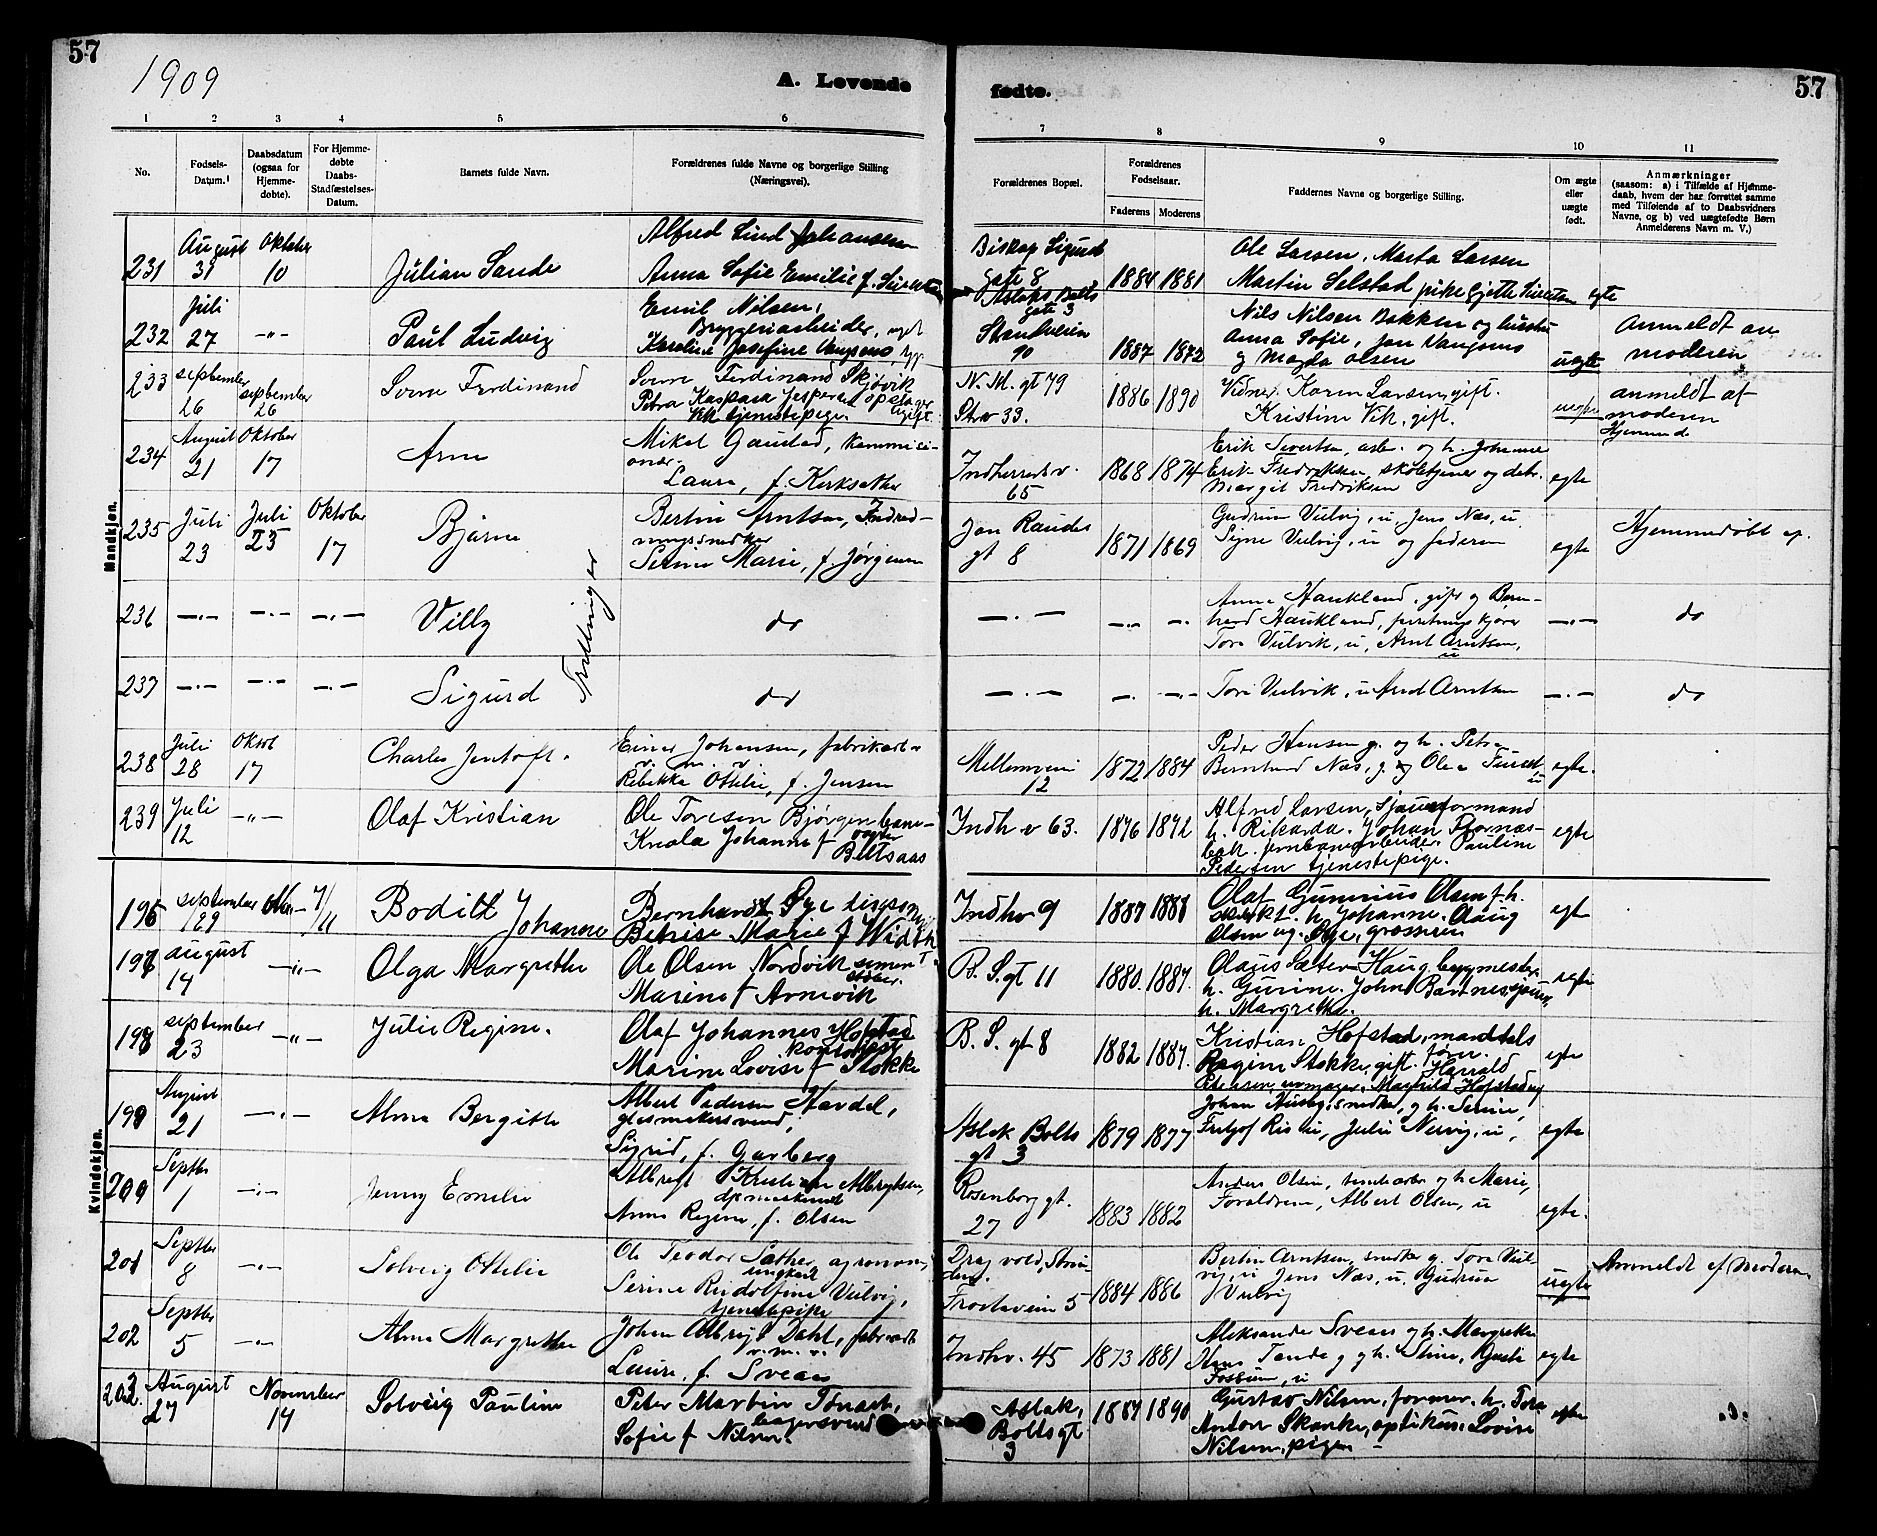 57
57
1909
A. Levende
fødte.
1 2 3 4 5 6
7 8 9 10 11
No. Fødsels-Datum. Daabsdatum (ogsaa for Hjemmedøbte). For Hjemmedøbte Daabs-Stadfæstelses-Datum. Barnets fulde Navn. Forældrenes fulde Navne og borgerlige Stilling (Næringsvei).
Forældrenes Bopæl. Forældrenes Fødselsaar. Faderens Moderens Faddernes Navne og borgerlige Stilling. Om ægte eller uægte født. Anmærkninger (saasom: a) i Tilfælde af Hjemmedaab, hvem der har forrettet samme med Tilføiende af to Daabsvidners Navne, og b) ved uægtefødte Børn Anmelderens Navn m. V.)
Mandkjøn.
231 August 31 Oktober 10 Julian Sande
Alfred Lind Johansen
Anna Sofie Emilie f.
Biskop Sigurds gate 8
1884 1881
Ole Larsen, Marta Larsen
Martin Selstad pike
egte
232 Juli 27 -"- Paul Ludvig
Emil Nilsen,
Bryggeriarbeider, ugift
Karoline Josefine
Aslaks Bolts gate 3
Strandveien 90
1887 1872
Nils Nilsen Bakken og hustru
Anna Sofie, Jon
og Magda Olsen
uegte
Anmeldt av moderen
233 september 26 september 26 Sorne Ferdinand
Sorne Ferdinand Skjövik
Petra Kaspara Jespersen
Vik tjenestepige.
N. M. gt 79
Str v 33.
1886 1890
Vidner: Karen Larsen, gift.
Kristine Vik, gift.
uegte
anmeldt af moderen
234 August 21 Oktober 17 Arne
Mikal Gaustad, kommisionær
Laura, f. Kirksæther
Indherredsv. 65
1868 1874
Erik Sivertsen, arb. og h. Johanne
Erik Fredriksen, skoletjener og dtr.
Margit Fredriksen
egte
235 Juli 23 Juli 25 Oktober 17 Bjarne
Bertin Arntsen,
Serine Marie, f. Jørgensen
Jon Raudes gt 8
1871 1869
Gudrun Vulvig, u, Jens Næs, u.
Signe Vulvig, u og faderen
egte
Hjemmedøbt
Trillinger
236 -.- -.- -.- Villy
do
-.- -.- -.-
Anna Haukland, gift og Bern-
hard Haukland,
Tora Vulvik, u, Arnt Arntsen, u
-.-
do
237 -.- -.- -.- Sigurd
do
-.- -.- -.-
Tora Vulvik, u Arnt Arntsen
-.-
do
238 Juli 28 Oktob 17 Charles Jentoft.
Einar Johansen, fabrikarb.
Rebekka Ottilie, f. Jensen
Mellemveien 12
1872 1884
Peder Hansen g. og h. Petra
Bernhard Næs, g. og Ole
egte.
239 Juli 12 -"- Olaf Kristian
Ole Toresen Bjørgen bane-
vogter
Johanna f Beltsaas
Indh v 63.
1876 1872
Alfred Larsen, sjauerformand
h. Rikarda. Johan
bak. jernbanearbeider. Pauline
Pedersen tjenestepige.
egte
Kvindekjøn.
196 september 29 7/11 Bodild Johanne
Bernhardt Øye
Marie f Width
Indhv 9
1887 1888
Olaf Gunnius Olsen f. h.
h. Johanne. Olaug
Olsen ug. Øye, grosserer
egte
197 august 14 -"- Olga Margrethe
Ole Olsen Nordvik sement
arbeider.
Marine f Arnevik
B. S. gt 11
1880. 1887.
Olaus Sæter Haug bygmester
h. Gurine. John Bartnes
h. Margrethe.
egte
198 september 23 -"- Julie Regine.
Olaf Johannes Hofstad
kontorist
Marine Lovise f Stokke
B. S. gt 8
1882 1887.
Kristian Hofstad, mandtals
fører.
Regine Stokke, gift. Harrald
Pedersen urmager. Maghild Hofstad ug
egte
199 August 21 -"- Alma Bergithe
Albert Pedersen Hardel,
glasmestersvend,
Sigrid, f. Garberg
Aslak Bolts gt 3
1879 1877
Johan Husby, snedker, og h. Serine,
Fritjof Risli, Julie Nervig, u,
egte
200 Septbr 1 -"- Jenny Emelie
Albregt Kristian Albrigtsen,
dpmaskinist
Anna Regine, f. Olsen
Rosenborg gt. 27
1883 1882
Anders Olsen, tomtearbr og h Marie,
Forældrene, Albert Olsen, u
egte.
201 Septbr 8 -"- Solveig Ottilie
Ole Teodor Sæther, agronom,
ungkarl
Serine Rudolfine Vulvig,
tjenestepike
Dragvold, Strinden.
Frostaveien 5
1884 1886
Bertin Arntsen, snedker g. Tora Vul-
vig, u Jens Næs, u. Gudrun
Vulvig
uegte
Anmeldt af Moderen
202 Septbr 5 -"- Alma Margrethe
Johan Albrigt Dahl, fabrarb
Laura, f. Sveaas
Indhv. 45
1873 1881
Aleksander Sveaas og h. Margrethe
Hans Tande g og h. Stine,
egte
203 August 27 November 14 Solveig Pauline
Peter Martin
bagersvend
Sofie f Nilsen.
Aslak Bolts gt 3
1887 1890
Gustav Nilsen, former. h. Tora
Anton Skanke, optikus. Lovise
Nilsen, pigen
egte